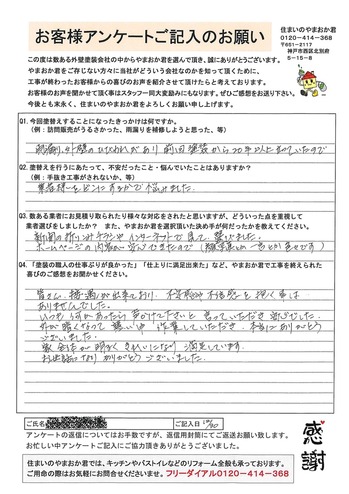 お客様アンケートご記入のお願い
住まいのやまおか君
0120-414-368
〒651-2117
神戸市西区北別府
5-15-8
この度は数ある外壁塗装会社の中からやまおか君を選んで頂き、誠にありがとうございます。
やまおか君をご存じない方々に当社がどういう会社なのかを知って頂くために、
工事が終わったお客様からの喜びのお声を紹介させて頂けたらと考えております。
お客様のお声を聞かせて頂く事はスタッフ一同大変励みになります。ぜひご感想をお送り下さい。
今後とも末永く、やまおか君をよろしくお願い申し上げます。
Q1. 今回塗替えすることになったきっかけは何ですか。
(例：訪問販売がうるさかった、雨漏りを修理しようと思った、等)
外壁のひびわれがあり 前回塗装から20年以上たっていたので
Q2. 塗替えを行うにあたって、不安だったこと・悩んでいたことはありますか？
(例：手抜き工事がされないか、等)
業者様をどこにするかで悩みました。
Q3. 数ある業者にお見積り取られたり様々な対応をされたと思いますが、どういった点を重視して
業者選びをしましたか？ また、やまおか君を選択頂いた決め手が何だったかを教えてください。
新聞の折り込みチラシやインターネットで見て、選びました。
ホームページの内容が安心できたので
Q4. 「塗装の職人の仕事ぶりが良かった」「仕上りに満足出来た」など、やまおか君で工事を終えられた
喜びのご感想をお聞かせください。
皆さん、挨拶が出来ており、不安感や不信感を抱く事は
ありませんでした。
いつも何かあったら声かけて下さいと言っていただき安心でした。
外が暗くなって寒い中 作業していただき、本当にありがとう
ございました。
家全体が明るくきれいになり 満足しています。
お世話になり ありがとうございました。
ご氏名
ご記入日
アンケートの返信についてはお手数ですが、返信用封筒にてご返送お願い致します。
お忙しい中アンケートにご協力頂きありがとうございました。
感謝
住まいのやまおか君では、キッチンやバストイレなどのリフォーム全般も承っております。
ご用命の際はお気軽にお問合せくださいませ。フリーダイアル0120-414-368